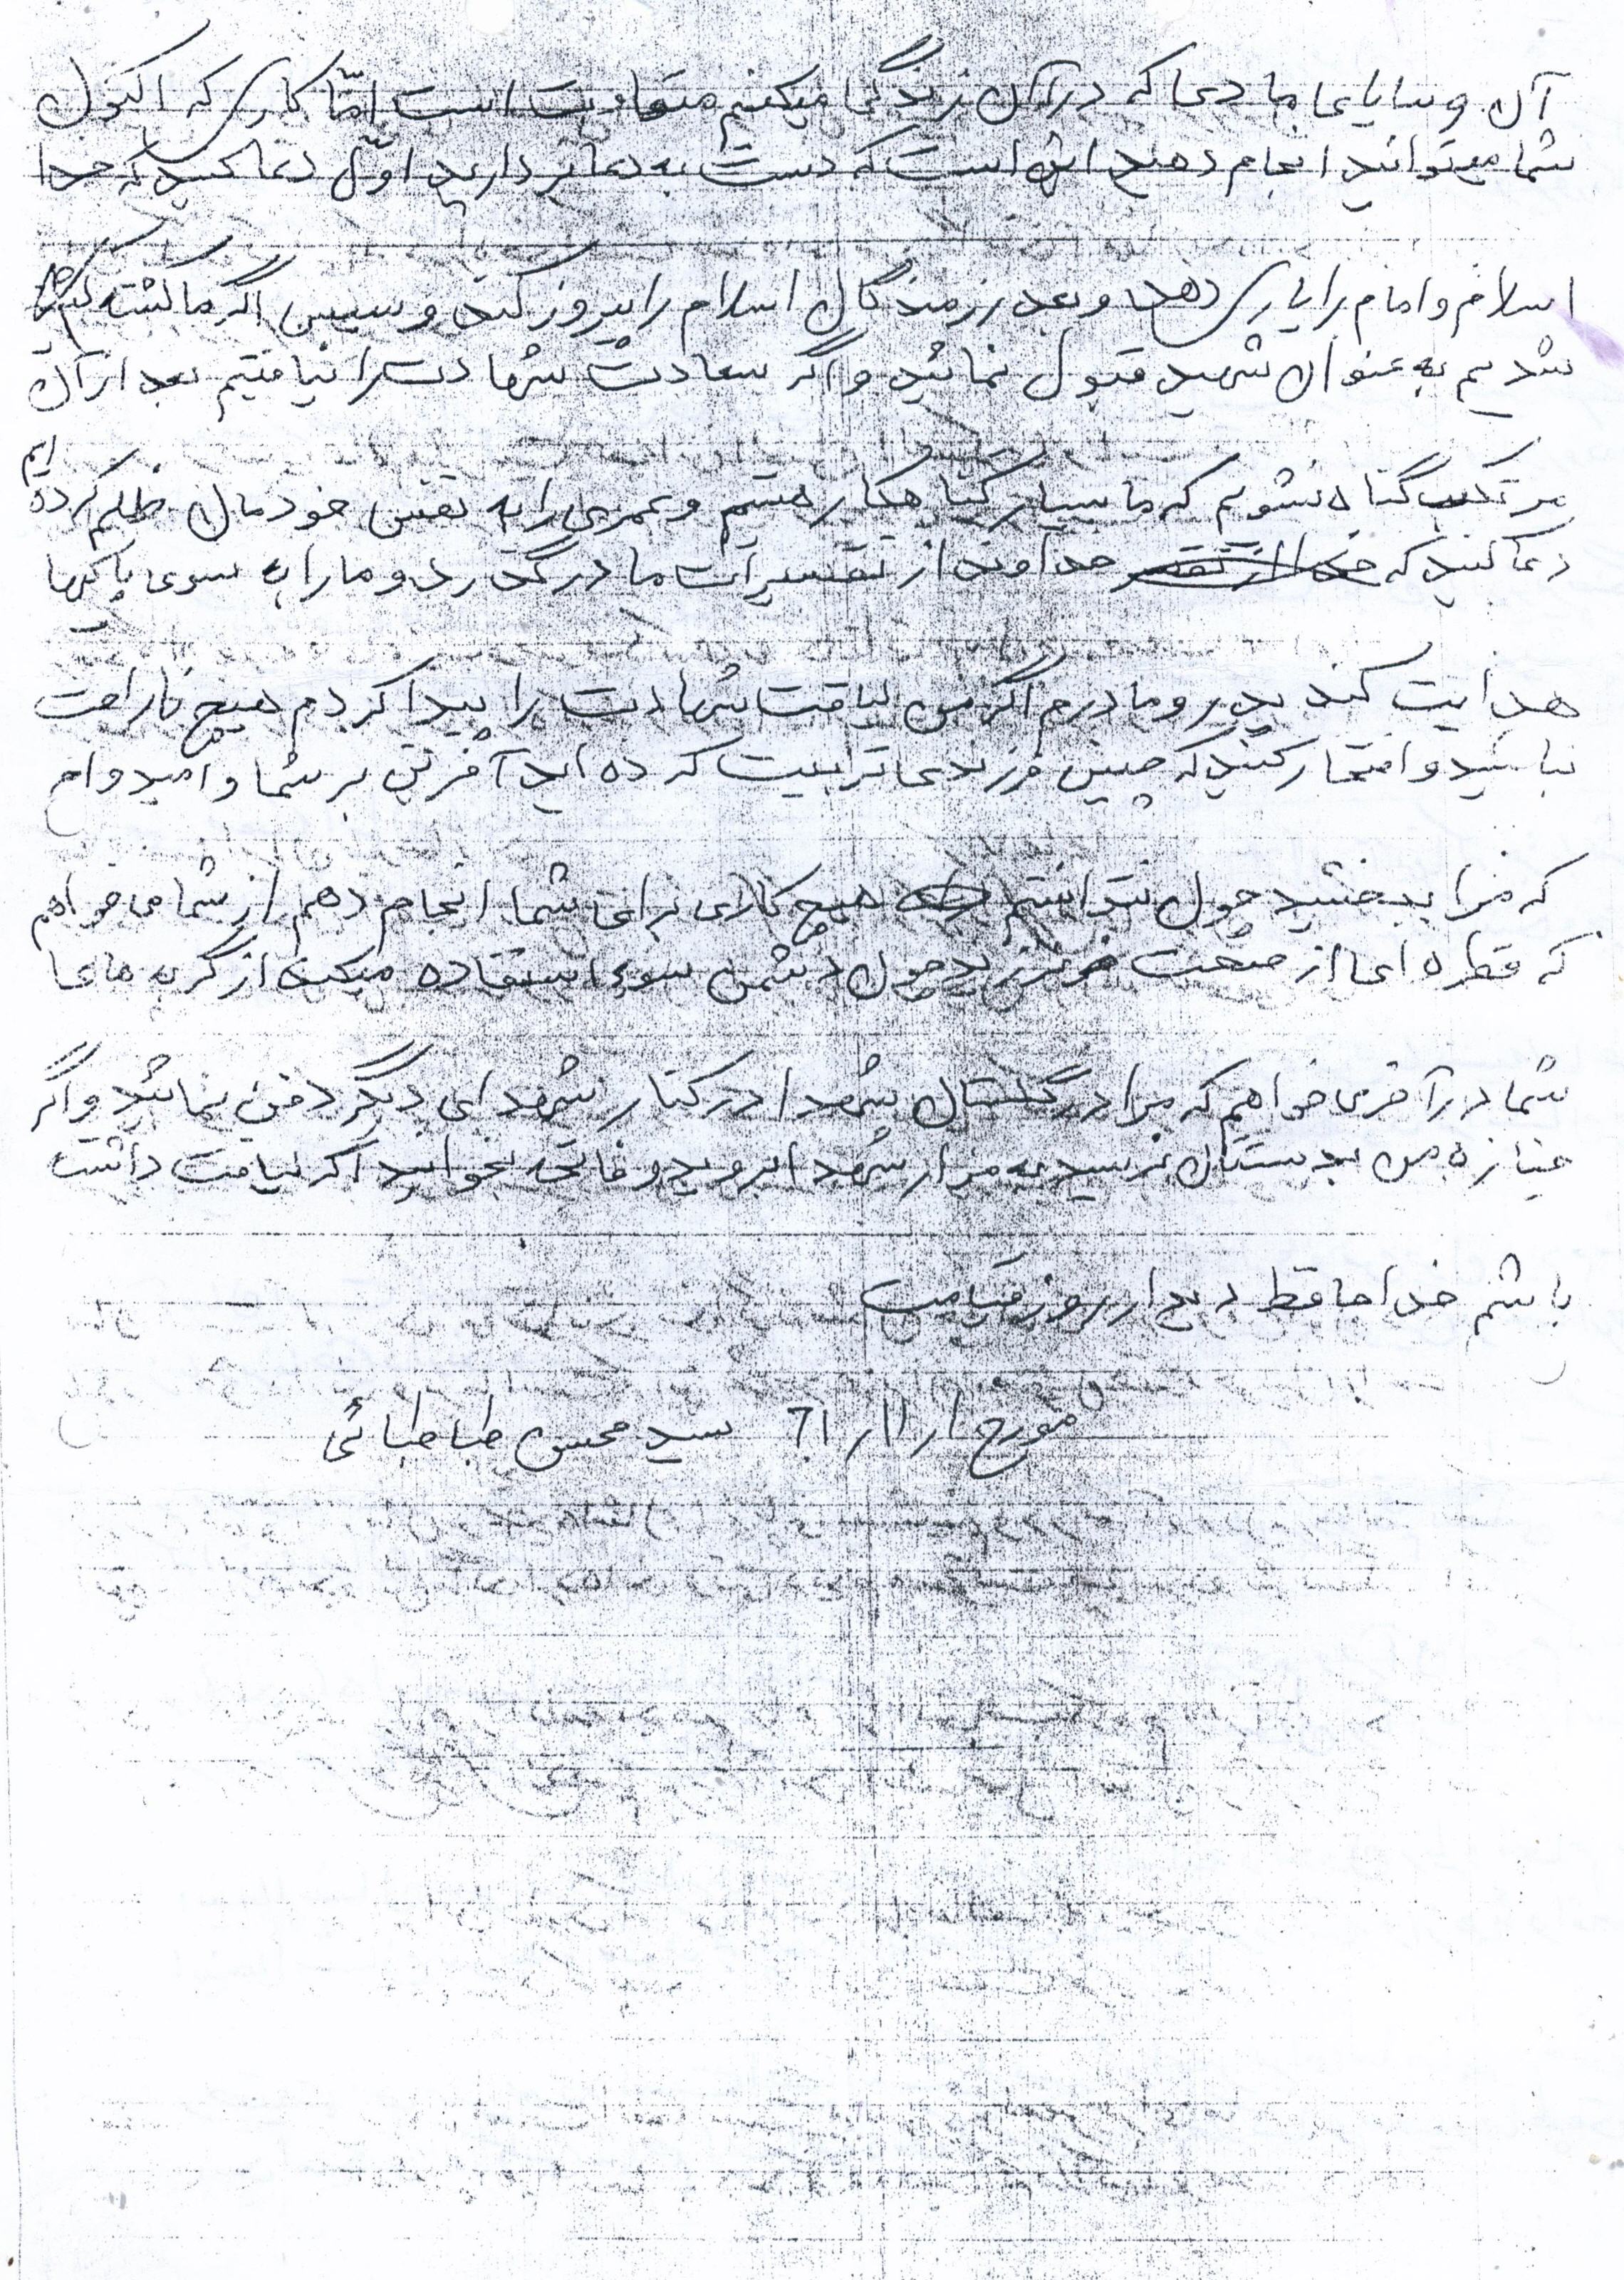 آن وسایلی مادی که در آن زندگی میکنیم متفاوت است امّا کاری که اکنول
شما میتوانید انجام دهید این است که دست به دعا بردارید اوّل دعا کنید که خدا
اسلام و امام را یاری دهد و بعد رزمندگان اسلام را پیروز کند و سپس اگر ما کشته
شدیم به عنوان شهید قبول نمائید و اگر سعادت شهادت را نیافتیم بعد از آن
مرتکب گناه نشویم که ما بسیار گناهکار هستیم و عمری را به نفس خودمان ظلم کرده ایم
دعا کنید که خداوند از تقسیرات ما درگذرد و ما را به سوی پاکیها
هدایت کند پدر و مادرم اگر من لیاقت شهادت را پیدا کردم هیچ ناراحت
نباشید و افتخار کنید که چنین فرزندی تربیت کرده اید آفرین بر شما و امیدوام
که مرا ببخشید چون نتوانستم هیچ کاری برای شما انجام دهم از شما می خواهم
که قطره ای از نریزید چون دشمن سوء استفاده میکند از گریه های
شما در آخر می خواهم که مرا در گلستان شهدا در کنار شهدای دیگر دفن نمائید و اگر
جنازه من بدستتان نرسید به مزار شهدا بروید و فاتحه بخوانید اگر لیاقت داشت
باشم خداحافظ دیدار روز قیامت
مورخ ۶۱/۱۱/۱ سید محسن طباطبائی